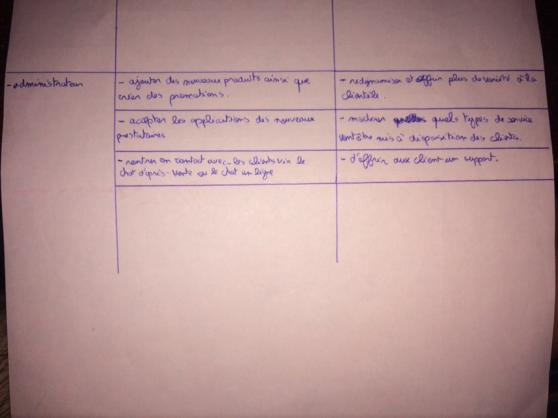 - administrateur
- ajouter des nouveaux produits ainsi que
créer des promotions.
- redynamiser et offrir plus de variété à la
clientèle.
- accepter les applications des nouveaux
prestataires
- modérer quels types de service
vont être mis à disposition des clients.
- rentrer en contact avec les clients via le
chat d'après-vente ou le chat en ligne
- d'offrir aux client un support.